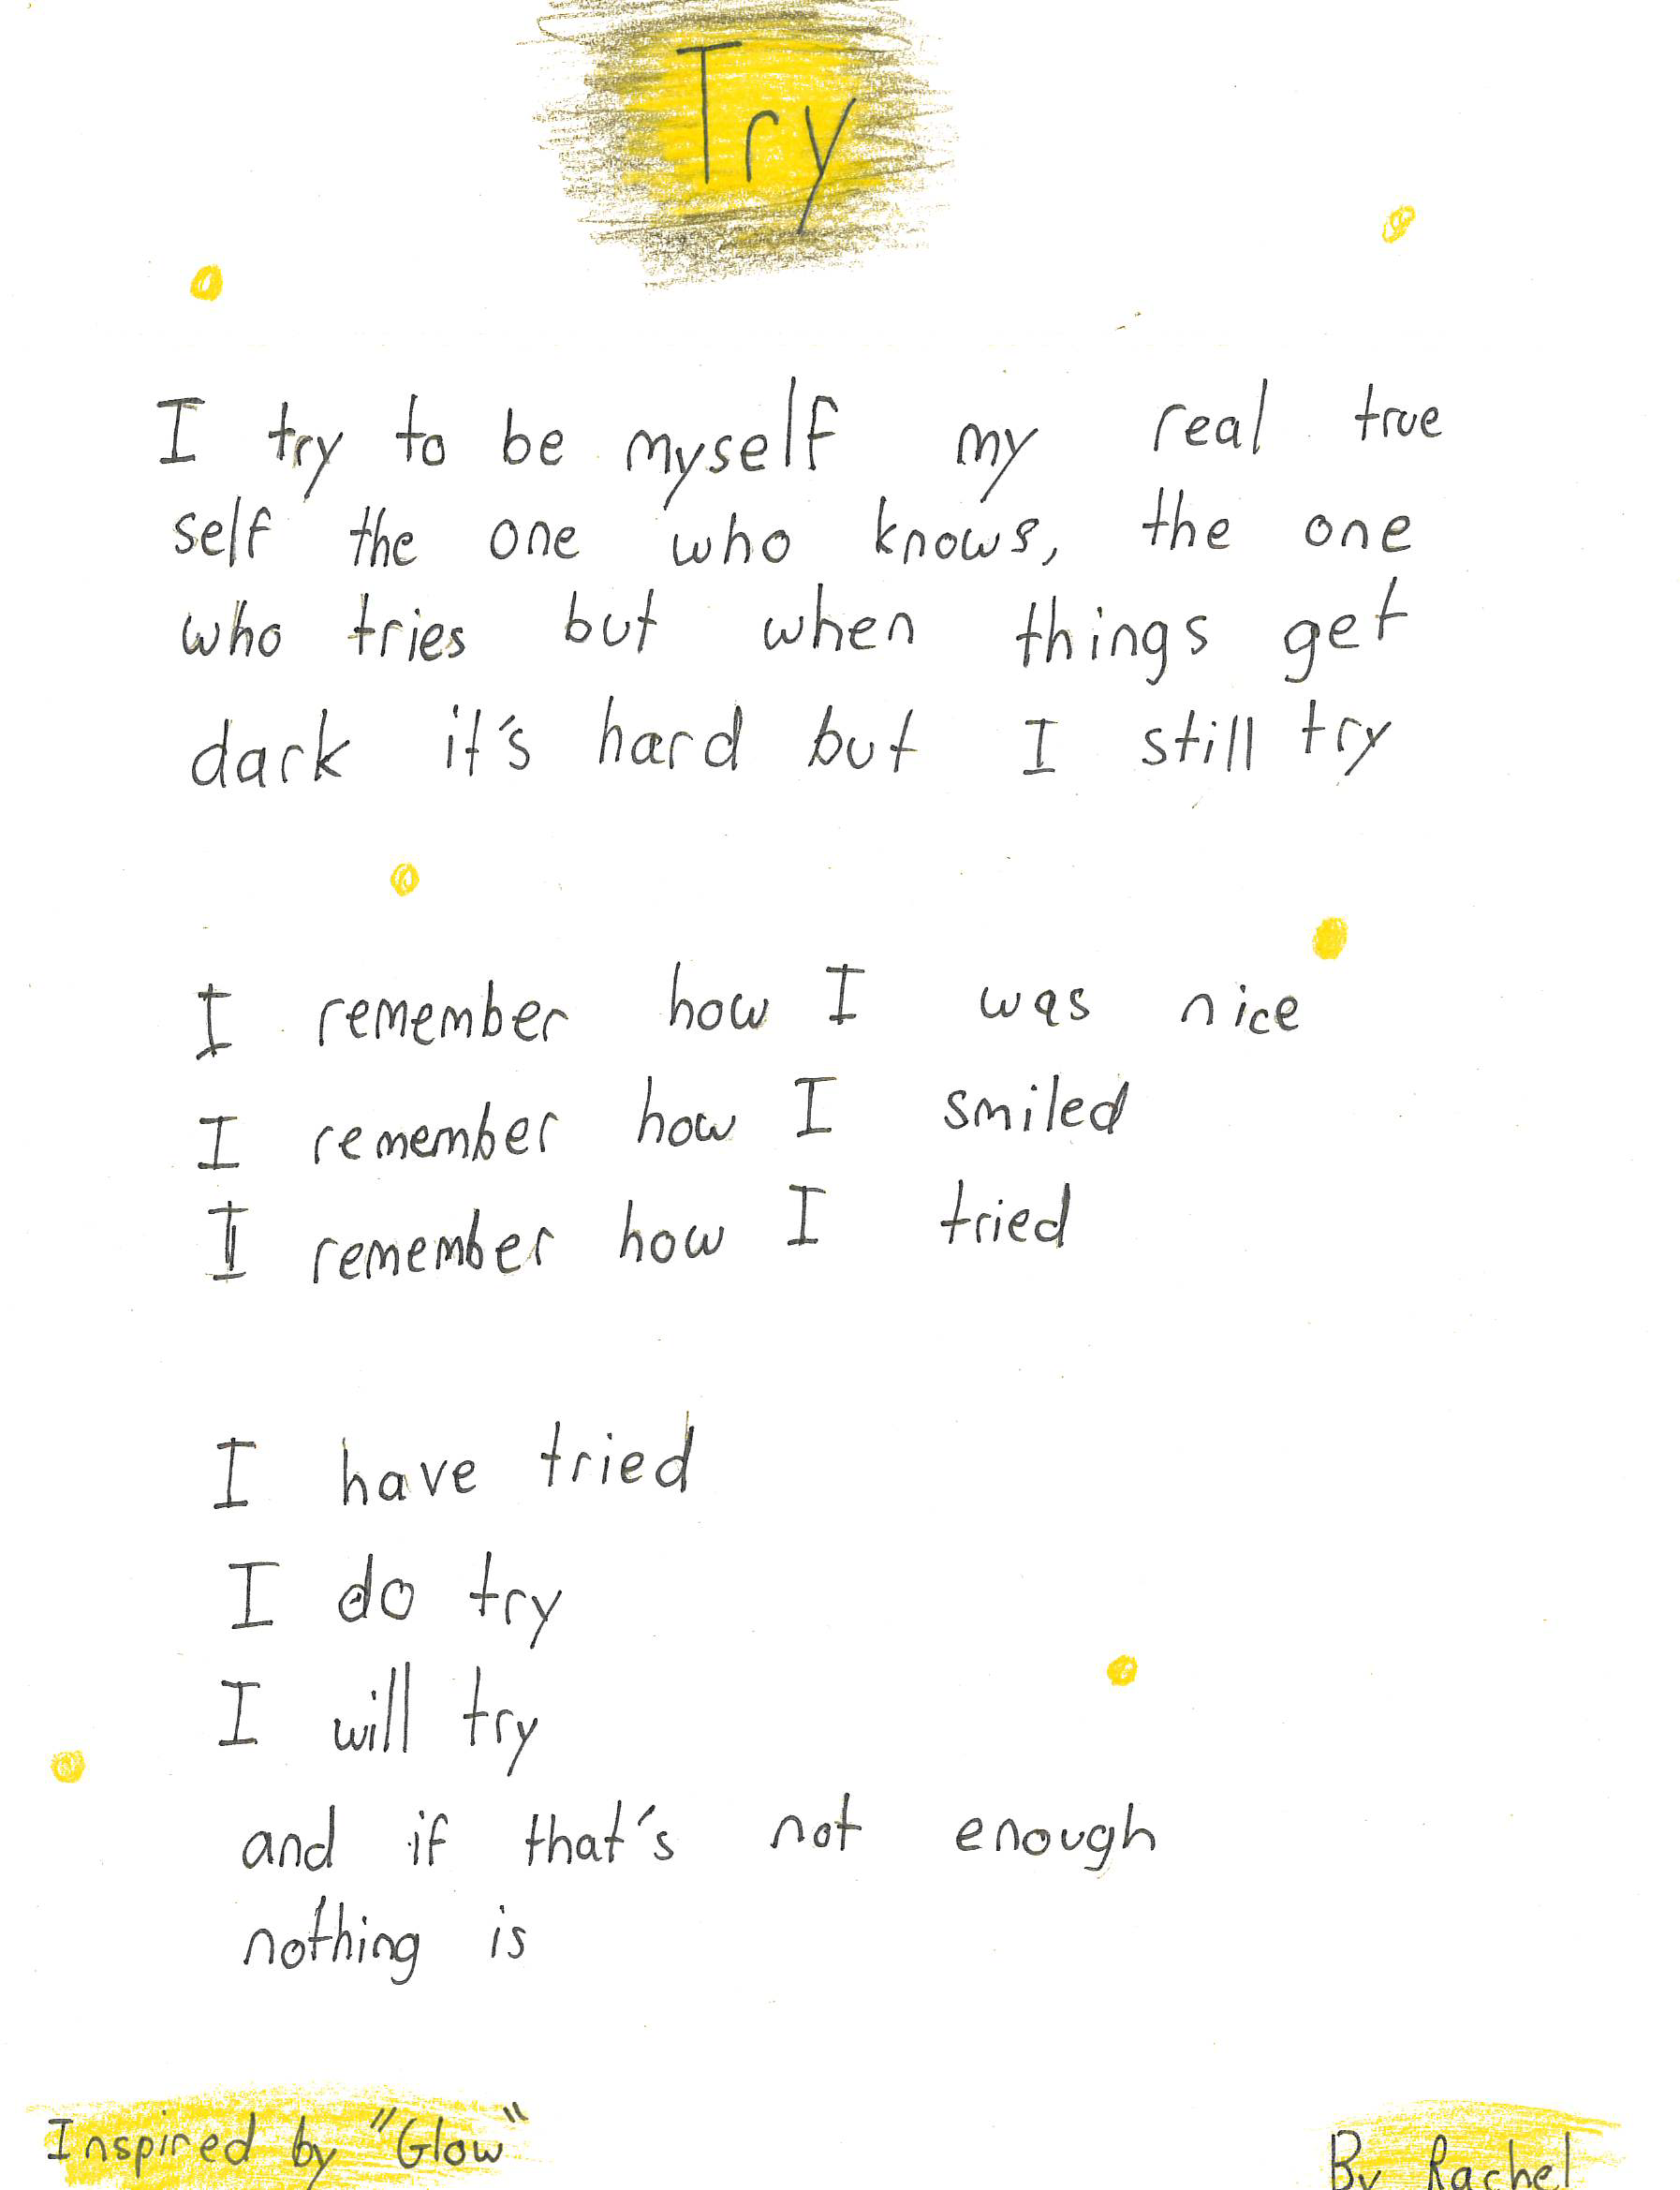 Try
I try to be myself my real true
self the one who knows, the one
who tries but when things get
dark it's hard but I still try
I remember how I was nice
I remember how I smiled
I remember how I tried
I have tried
I do try
I will try
and if that's not enough
nothing is
Inspired by "Glow"
By Rachel